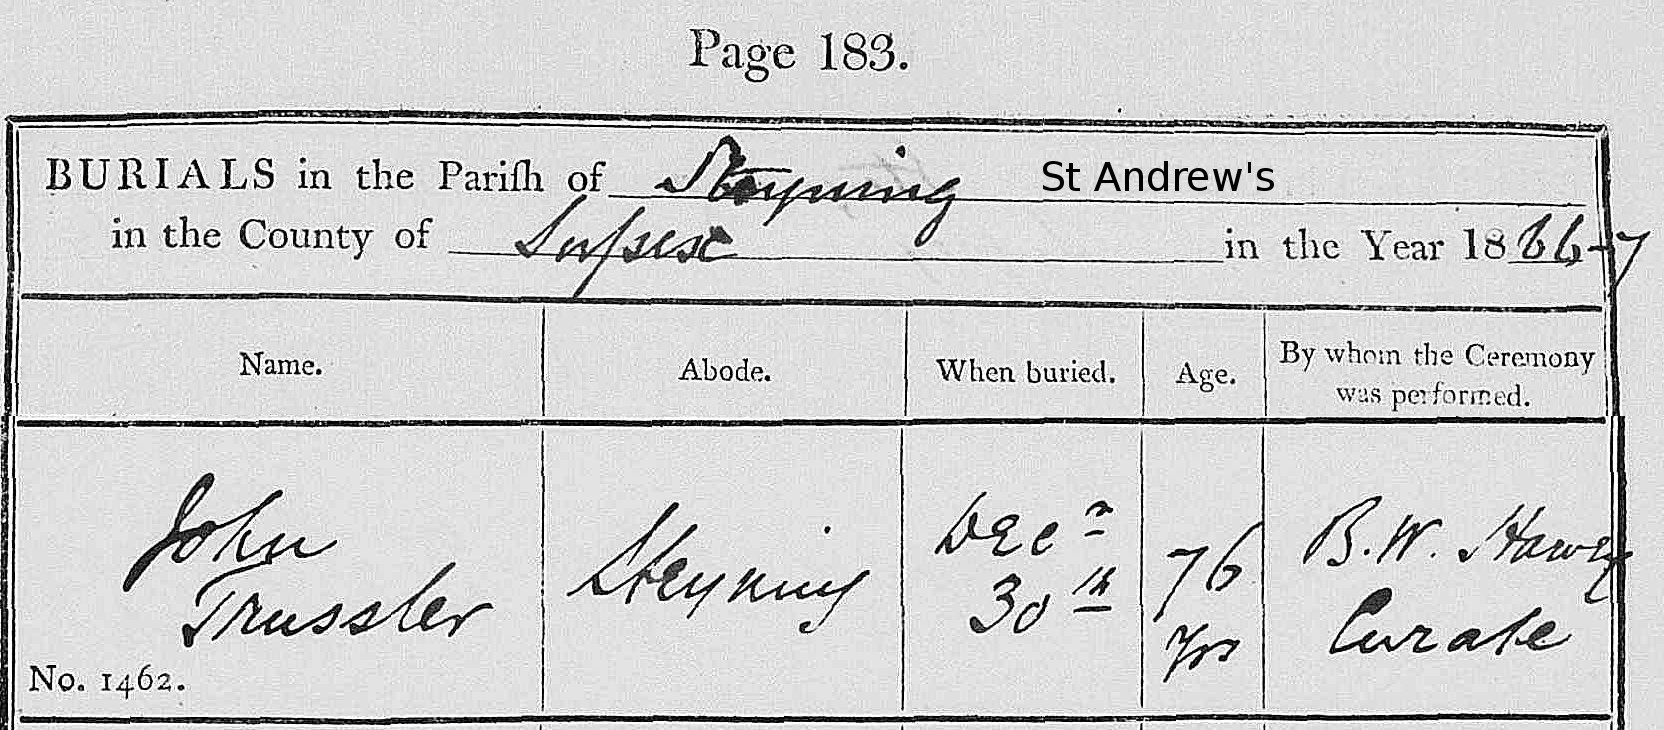 Page 183.
BURIALS in the Pariſh of Steyning St Andrew's
in the County of Suſsex in the Year 1866-7
Name. Abode. When buried. Age. By whom the Ceremony was performed.
John
Trussler
Steyning
Decr
30th
76
yrs
B. W.
Curate
No. 1462.